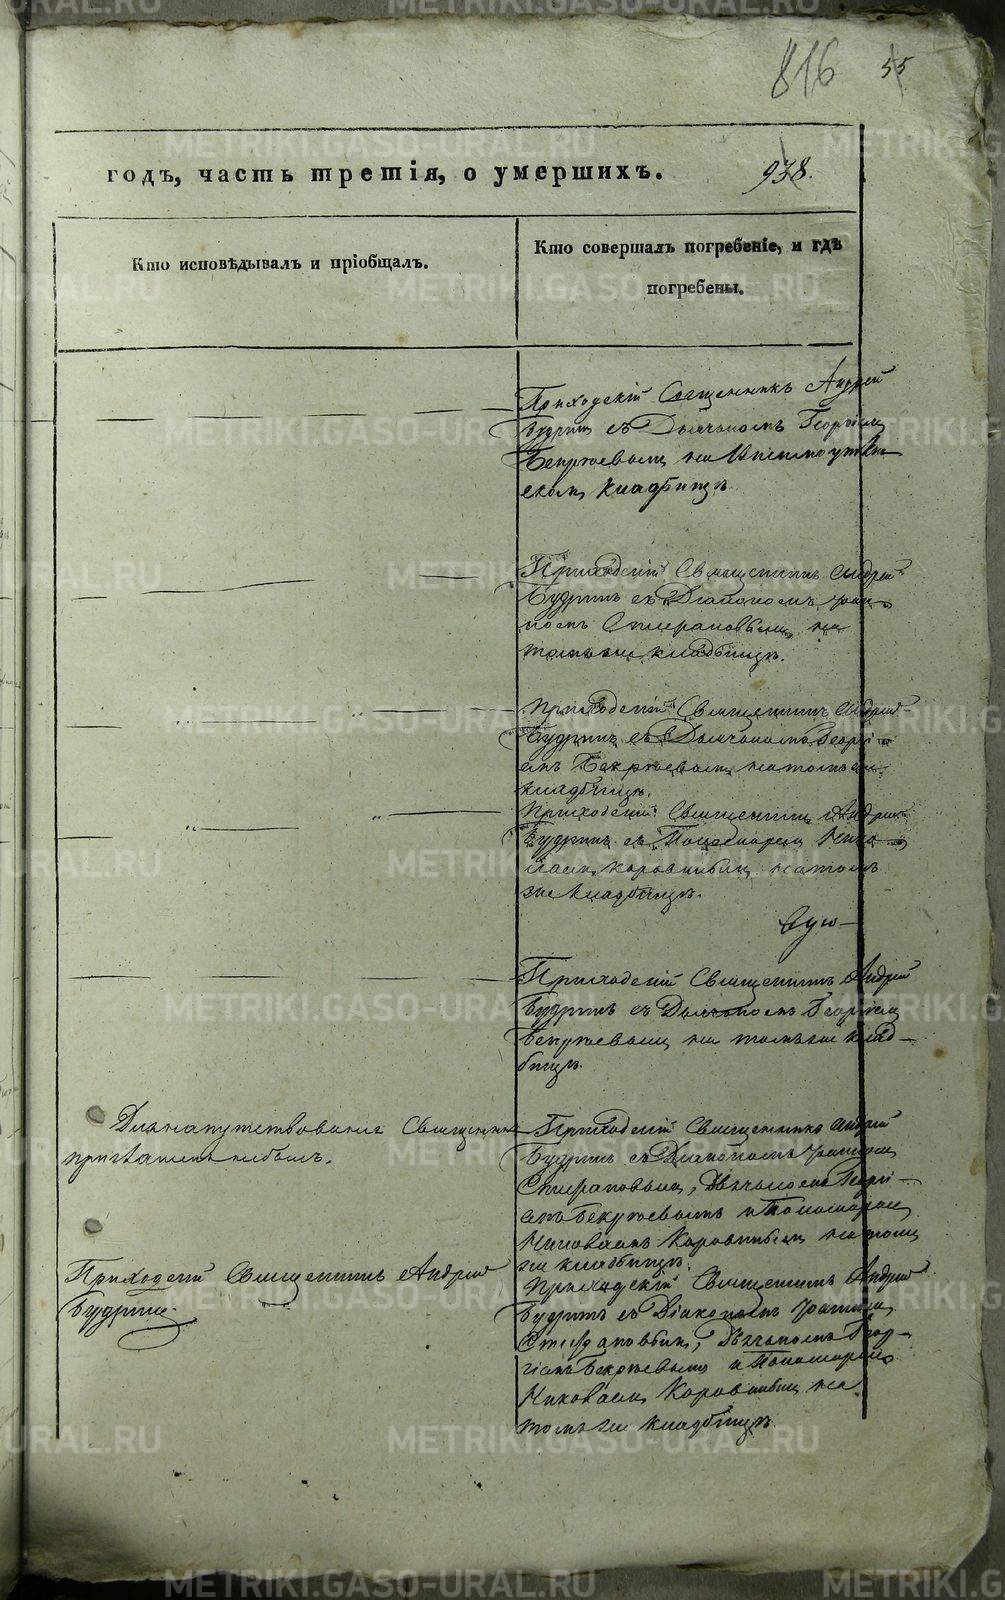 816 55
годъ, часть третія, о умершихъ. 938.
Кто исповѣдывалъ и пріобщалъ.
Кто совершалъ погребеніе, и гдѣ
погребены.
Приходскій Священникъ Андрей
Будринъ съ Дьячькомъ Георгіем
Бекряевымъ на
скомъ кладбищѣ
Приходскій Священникъ Андрей
Будринъ съ Діакономъ Іоан-
номъ Стефановымъ, на
томъ же кладбищѣ.
Приходскій Священникъ Андрей
Будринъ съ Дьячкомъ Георгі-
емъ Бекряевымъ на томъ же
кладбищѣ.
Приходскій Священникъ Андрей
Будринъ съ Пономаремъ Нико-
лаем Коровинымъ на томъ
же кладбищѣ.
Приходскій Священникъ Андрей
Будринъ съ Дьячькомъ Георгіем
Бекряевымъ на томъ же клад-
бищѣ.
Для напутствованія Священникъ
приглашенъ не былъ.
Приходскій Священникъ Андрей
Будринъ съ Діакономъ Іоанномъ
Стефановымъ, Дьячькомъ Георгі-
емъ Бекряевымъ и Пономаремъ
Николаемъ Коровинымъ на томъ
же кладбищѣ.
Приходскій Священникъ Андрей
Будринъ.
Приходскій Священникъ Андрей
Будринъ съ Діакономъ Іоанномъ
Стефановымъ, Дьячькомъ Геор-
гіемъ Бекряевымъ и Пономаремъ
Николаемъ Коровинымъ на
томъ же кладбищѣ.
METRIKI.GASO-URAL.RU